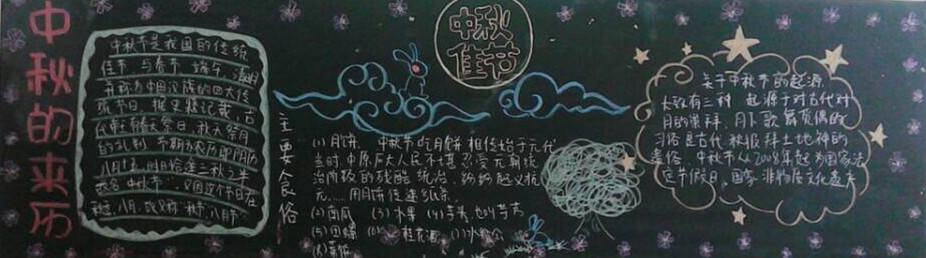 中秋的来历
中秋节是我国的传统
佳节,与春节、端午、清明
并称为中国汉族的四大传
统节日。据史籍记载,古
代帝王有春天祭日、秋天祭月
的礼制,节期为农历即阴历
八月十五,时日恰逢三秋之半
故名"中秋节"。又因这个节日在
秋季、八月,故又称"秋节"、八月节
中秋
佳节
主要食俗
(1)月饼,中秋节吃月饼相传始于元代
当时中原广大人民不堪忍受元朝统
治阶级的残酷统治,纷纷起义抗
元……用月饼传递纸条。
(2)南瓜 (3)水果 (4)芋头,也叫芋艿
(5)田螺 桂花酒
关于中秋节的起源,
大致有三种:起源于对古代对
月的崇拜、月下歌舞觅偶的
习俗,是古代秋报拜土地神的
遗俗。中秋节从2008年起为国家法
定节假日。国家非物质文化遗产